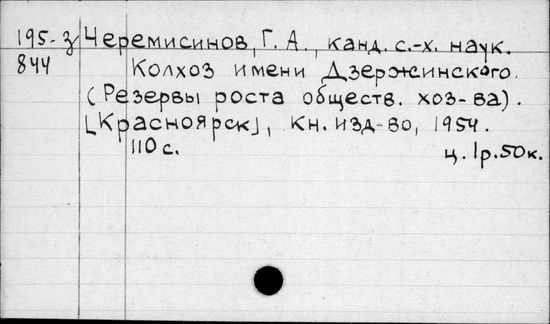 195-3 Черемисинов, Г. А., канд. с.-х. наук.
844 Колхоз имени Дзержинского.
(Резервы роста обществ. хоз-ва).
[Красноярск], Кн. изд-во, 1954.
110 с. ц. 1р.50к.